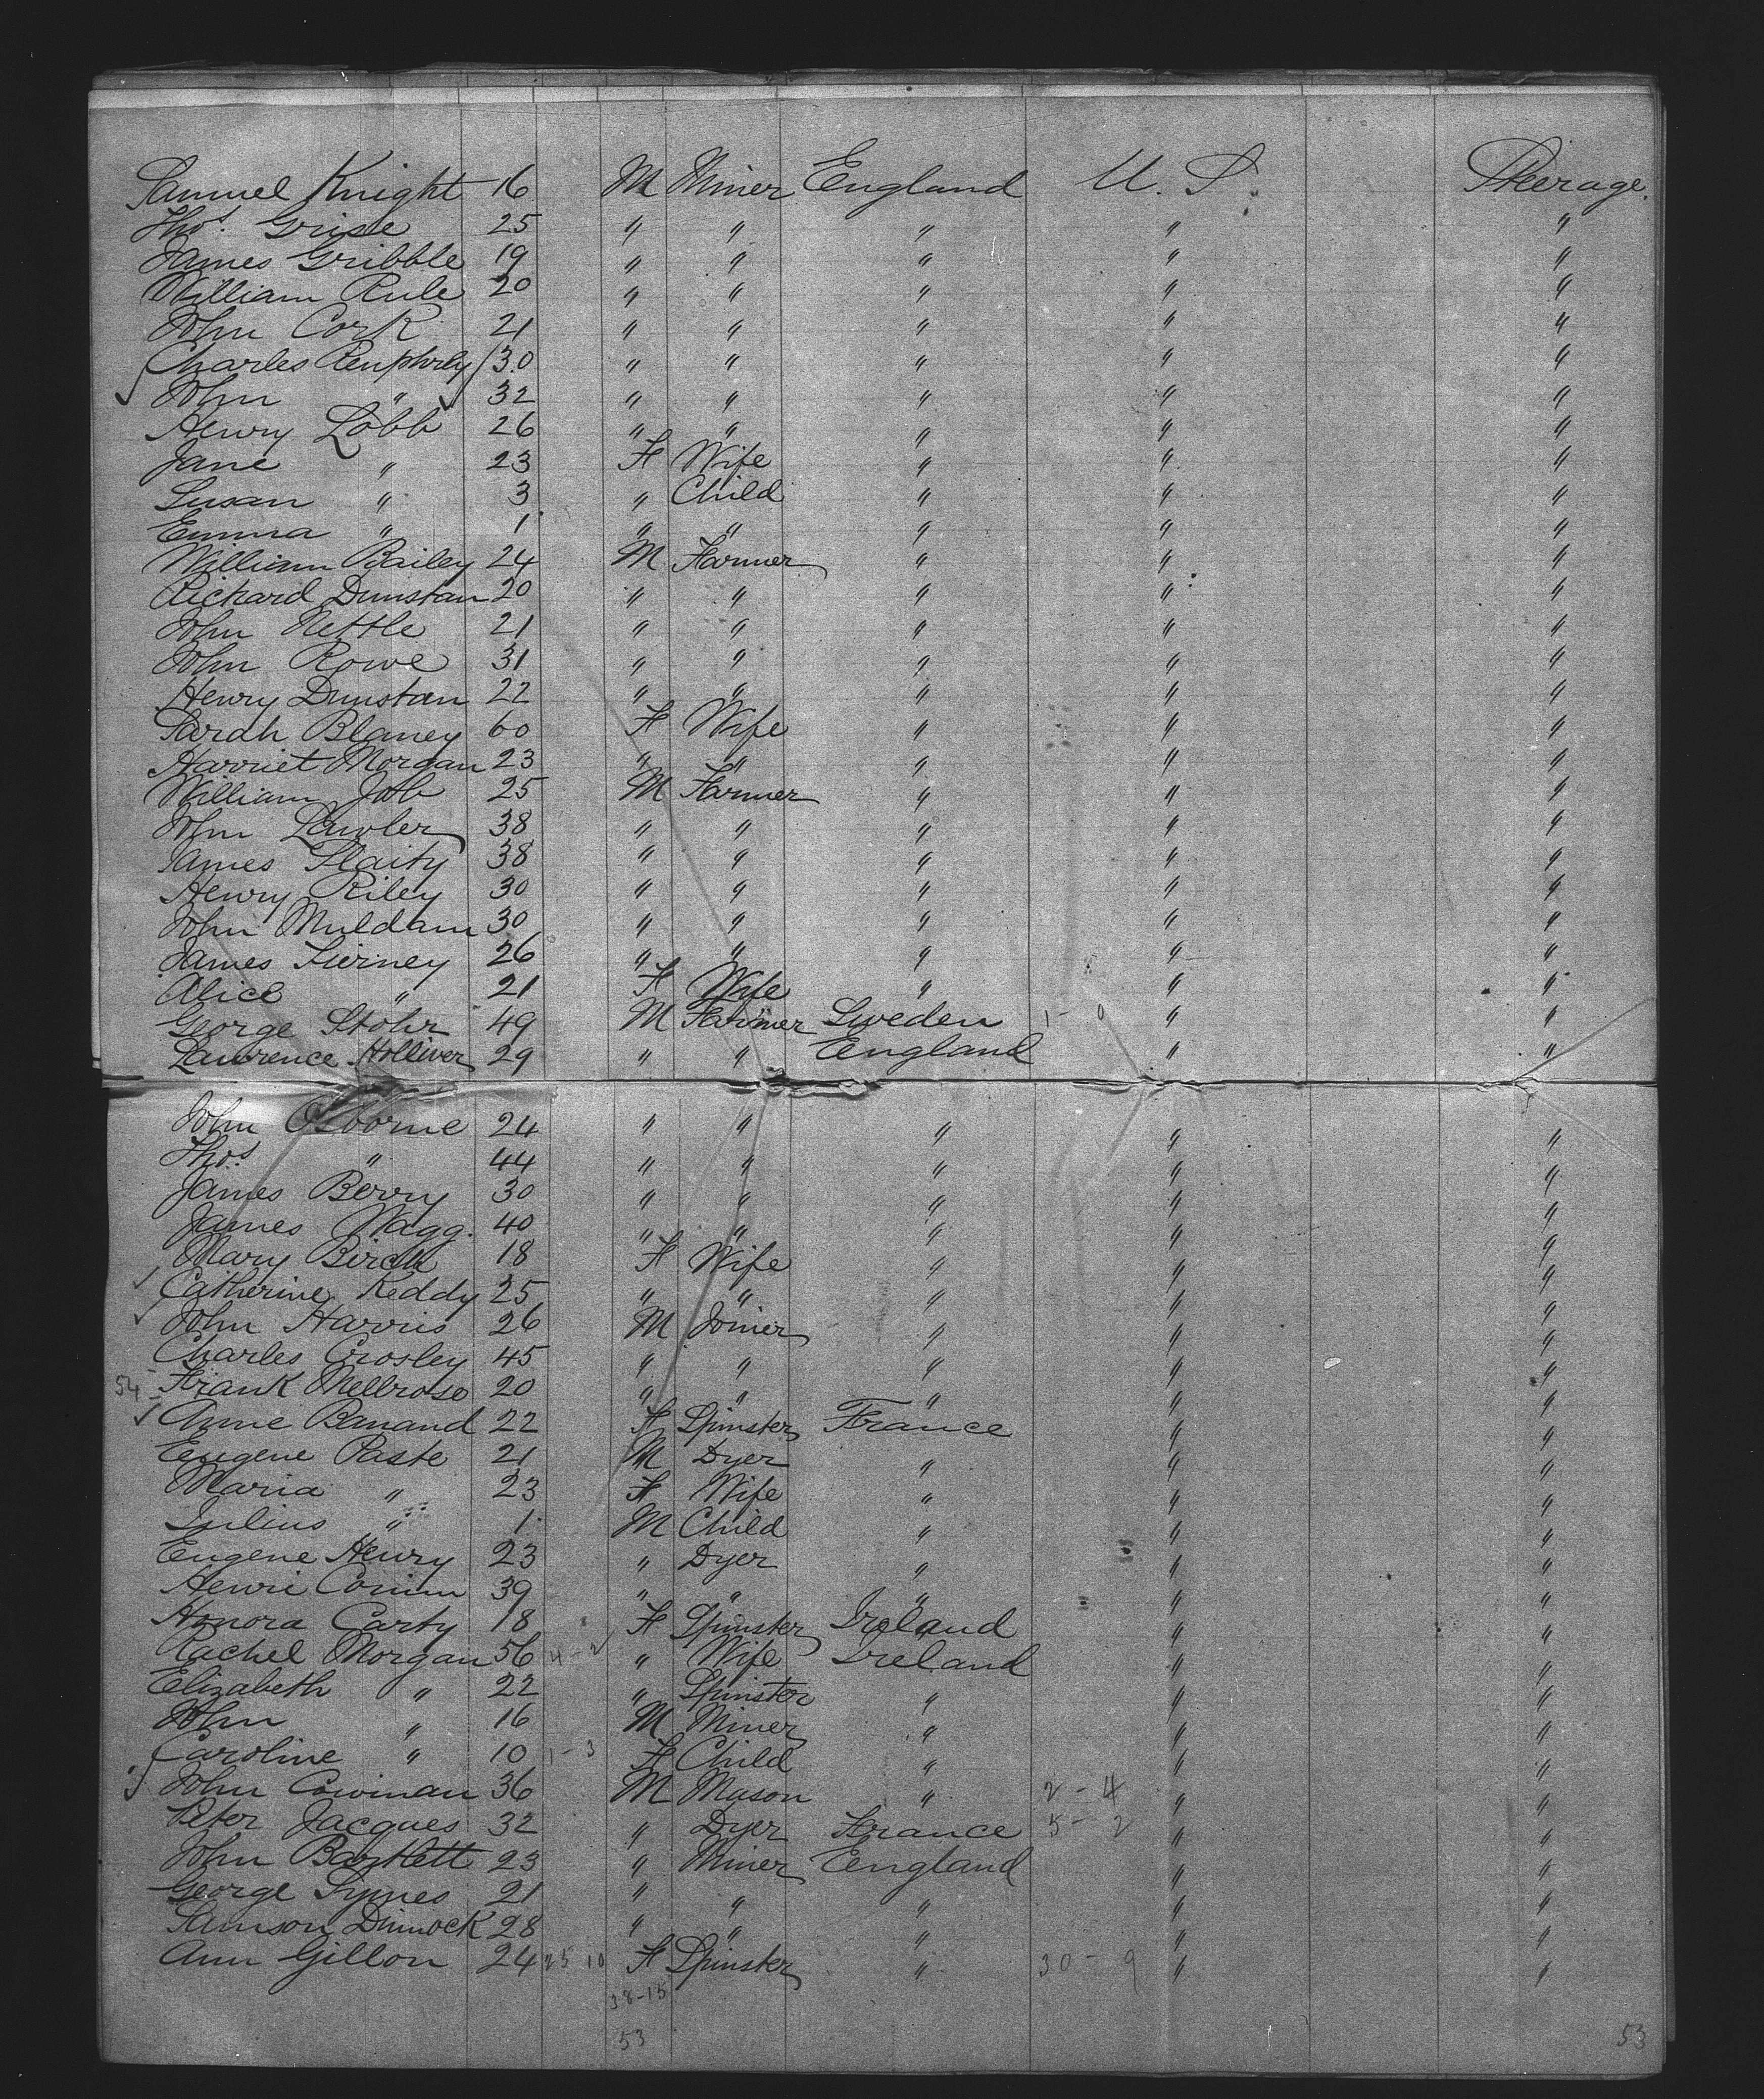 Samuel Knight 16 M Miner England U. S. Steerage.
Thos. Grise 25 " " " " "
James Gribble 19 " " " " "
William Rule 20 " " " " "
John Cork 21 " " " " "
Charles Renphrey 30 " " " " "
John " 32 " " " " "
Henry Lobb 26 " " " " "
Jane " 23 F Wife " " "
Susan " 3 " Child " " "
Emma " 1 " " " " "
William Bailey 24 M Farmer " " "
Richard Dunstan 20 " " " " "
John Nettle 21 " " " " "
John Rowe 31 " " " " "
Henry Dunstan 22 " " " " "
Sarah Blaney 60 F Wife " " "
Harriet Morgan 23 " " " " "
William Job 25 M Farmer " " "
John Lawler 38 " " " " "
James Flaity 38 " " " " "
Henry Riley 30 " " " " "
John Muldam 30 " " " " "
James Tierney 26 " " " " "
Alice " 21 F Wife " " "
George Stohr 49 M Farmer Sweden 1 - 0 " "
Lawrence Holliver 29 " " England " "
John Osborne 24 " " " " "
Thos. " 44 " " " " "
James Berry 30 " " " " "
James Wagg. 40 " " " " "
Mary Birch 18 F Wife " " "
Catherine Keddy 25 " " " " "
John Harris 26 M Joiner " " "
Charles Crosley 45 " " " " "
54 Frank Mellrose 20 " " " " "
Anne Banand 22 F Spinster France " "
Eugene Paste 21 M Dyer " " "
Maria " 23 F Wife " " "
Julius " 1 M Child " " "
Eugene Henry 23 " Dyer " " "
Henri Conim 39 " " " " "
Honora Carty 18 F Spinster Ireland " "
Rachel Morgan 56 4 - 2 " Wife Ireland " "
Elizabeth " 22 " Spinster " " "
John " 16 M Miner " " "
Caroline " 10 1 - 3 F Child " " "
John Cowman 36 M Mason " 2 - 4 " "
Peter Jacques 32 " Dyer France 5 - 2 " "
John Bartlett 23 " Miner England " "
George Symes 21 " " " " "
Samson Dimmock 28 " " " " "
Ann Gillon 24 25 10 F Spinster " 30 - 9 " "
38-15
53 53